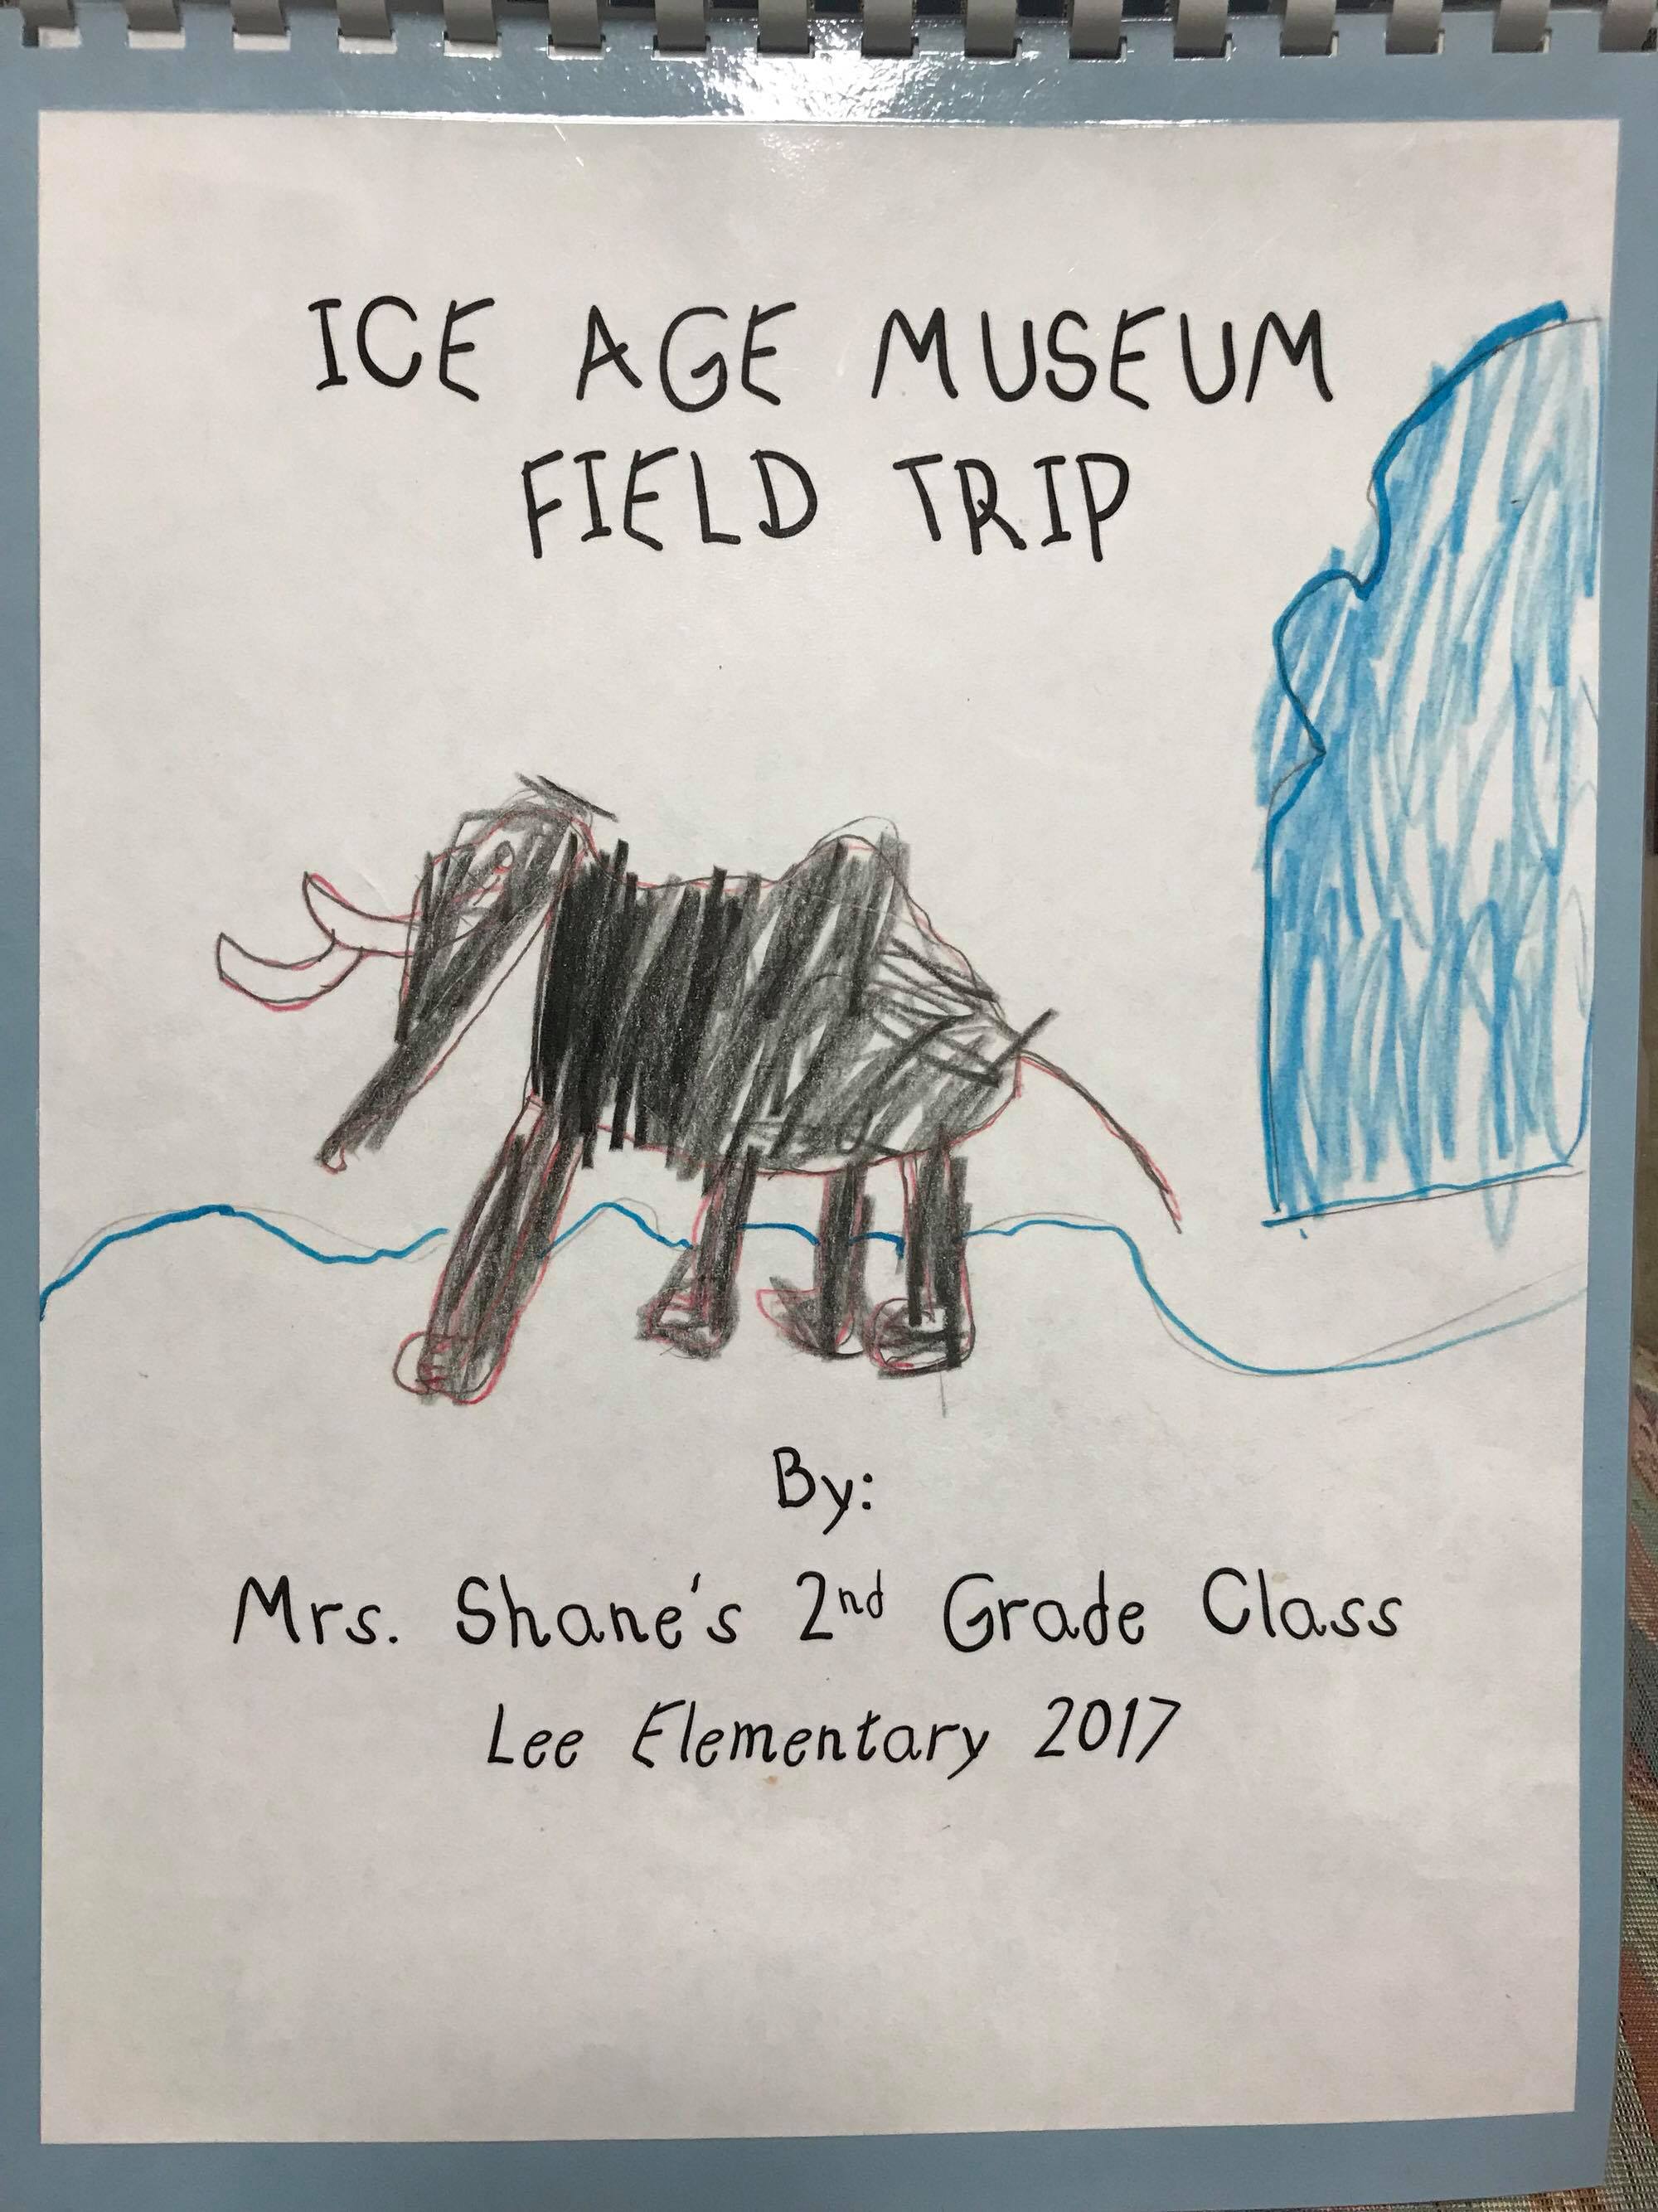 ICE AGE MUSEUM
FIELD TRIP
By:
Mrs. Shane's 2nd Grade Class
Lee Elementary 2017